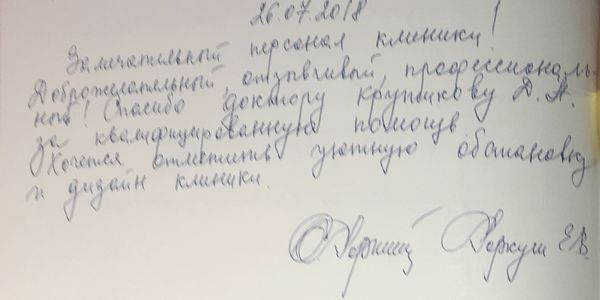 26.07.2018
Замечательный персонал клиники!
Доброжелательный, отзывчивый, профессиональ-
ный! Спасибо доктору Крупикову Д.А.
за квалифицированную помощь.
Хочется отметить уютную обстановку
и дизайн клиники.
Е.В.